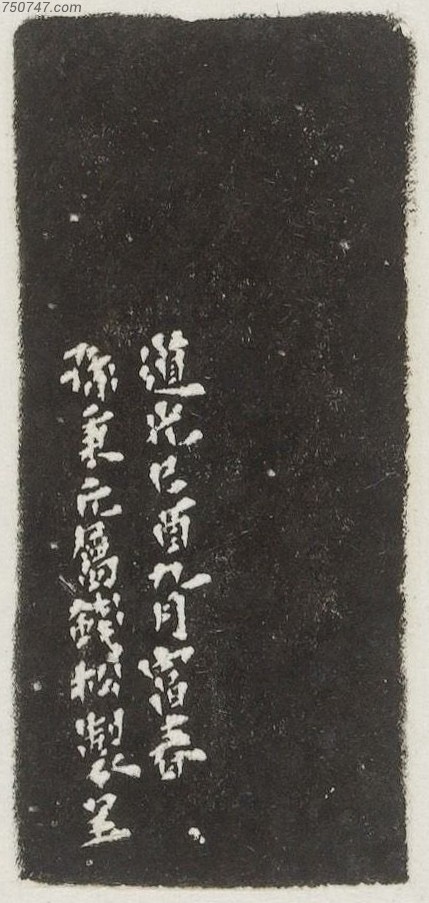 750747.com
道光己酉九月富春
孫秉元屬錢松製